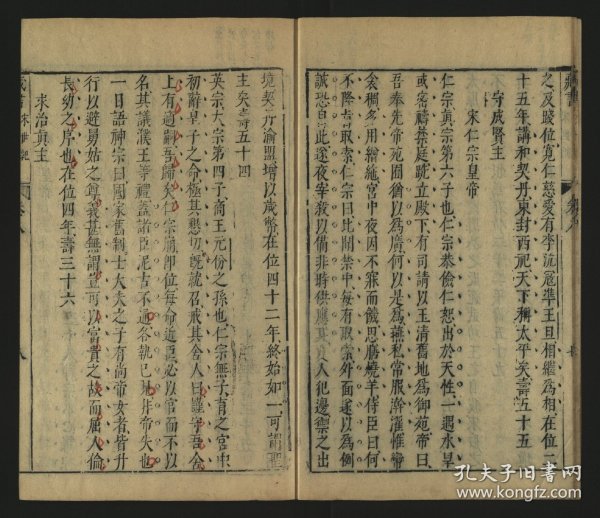 之及踐位寬仁慈愛有李沆寇準王旦相繼爲相在位二
十五年講和契丹東封西祀天下稱太平矣壽五十五
守成賢主
宋仁宗皇帝
仁宗眞宗第六子也仁宗恭儉仁恕出於天性一遇水旱
或密禱禁庭跣立殿下有司請以玉清舊地爲御苑帝曰
吾奉先帝苑囿猶以爲廣何以是爲燕私常服澣濯帷帟
衾裯多用繒絁宮中夜因不寐而饑思膳燒羊侍臣曰何
不降旨取索仁宗曰比聞禁中每有取索外面遂以爲例
誠恐自此逐夜宰殺以備非時供應 人犯邊禦之出
境契丹渝盟增以歲幣在位四十二年終始如一可謂聖
主矣壽五十四
英宗太宗第四子商王元份之孫也仁宗無子育之宮中
初辭皇子之命極其懇切旣就召戒其舍人曰謹守吾舍
上有適嗣吾歸矣仁宗崩卽位每命近臣必以官而不以
名其議濮王等禮蓋諸臣泥古不通各執己見非帝失也
一日語神宗曰國家舊制士大夫之子有尚帝女者皆升
行以避舅姑之尊義甚無謂豈可以富貴之故而屈人倫
長幼之序也在位四年壽三十六
求治眞主
孔夫子旧书网
www.kongfz.com